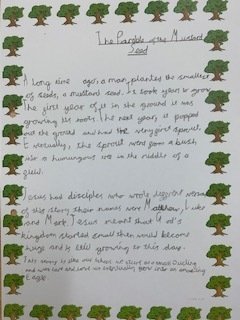 The Parable of the Mustard
Seed
A long time ago, a man planted the smallest
of seeds, a mustard seed. It took years to grow.
The first year of it in the ground it was
growing its roots. The next year, it popped
out the ground and had the very first sprout.
Eventually, the sprout went from a bush
into a humungous tree in the middle of a
field.
Jesus had disciples who wrote different versions
of this story their names were Matthew, Luke
and Mark. Jesus means that God's
kingdom started small then would become
huge and is still growing to this day.
This story is like our school we start as a small Duckling
and work hard and we eventually grow into an amazing
Eagle.